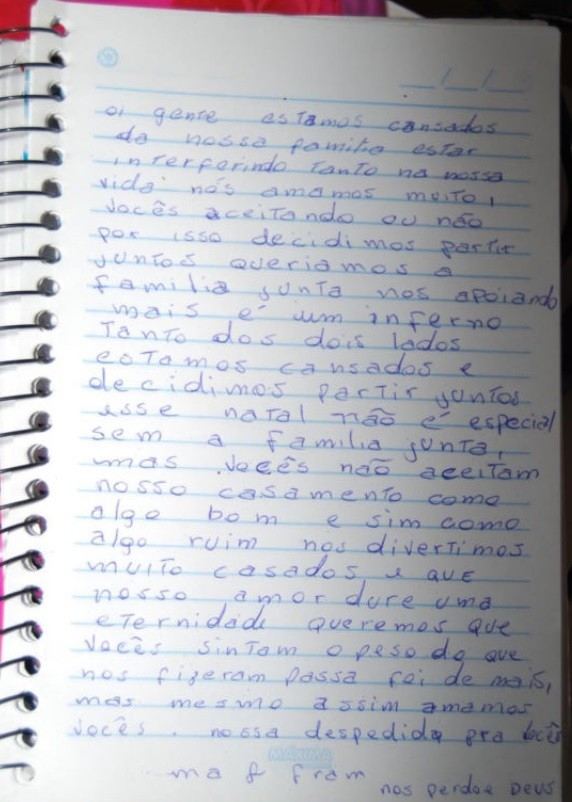 __/__/__
oi gente estamos cansados
da nossa familia estar
interferindo tanto na nossa
vida nós amamos muito,
vocês aceitando ou não
por isso decidimos partir
juntos queriamos a
familia junta nos apoiando
mais é um inferno
Tanto dos dois lados
estamos cansados e
decidimos partir juntos
esse natal não é especial
sem a familia junta,
mas vocês não aceitam
nosso casamento como
algo bom e sim como
algo ruim nos divertimos
muito casados e que
nosso amor dure uma
eternidade queremos que
vocês sintam o peso do que
nos fizeram passa foi de mais,
mas mesmo assim amamos
vocês. nossa despedida pra vocês
MÁXIMA
ma & fram
nos perdoe Deus